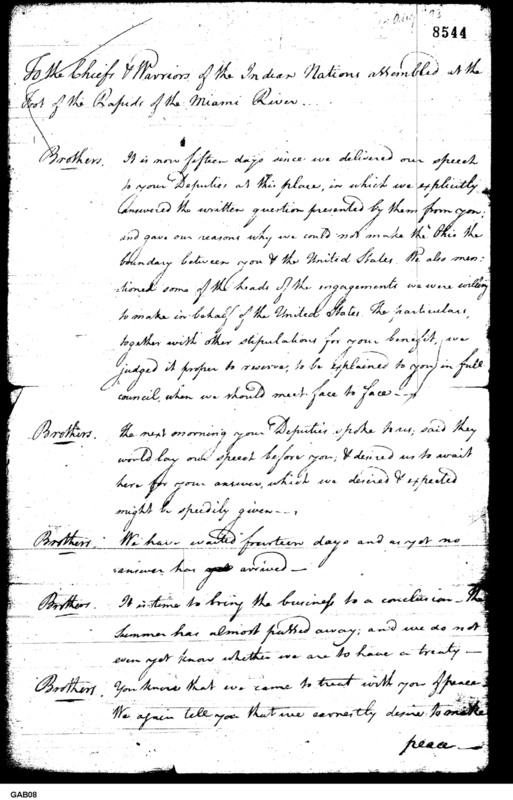 Aug 93
8544
To the Chiefs & Warriors of the Indian Nations assembled at the
Foot of the Rapids of the Miami River.
Brothers. It is now fifteen days since we delivered our speech
to your Deputies at this place, in which we explicitly
answered the written question presented by them from you;
and gave our reasons why we could not make the Ohio the
boundary between you & the United States. We also men-
tioned some of the heads of the engagements we were willing
to make in behalf of the United States. The particulars,
together with other stipulations for your benefit, we
judged it proper to reserve, to be explained to you in full
council, when we should meet face to face.
Brothers. The next morning your Deputies spoke to us; said they
would lay our speech before you; & desired us to wait
here for your answer, which we desired & expected
might be speedily given.
Brothers. We have waited fourteen days and as yet no
answer has arrived
Brothers. It is time to bring the business to a conclusion. The
Summer has almost passed away; and we do not
even yet know whether we are to have a treaty
Brothers. You know that we came to treat with you of peace.
We again tell you that we earnestly desire to make
peace
GAB08